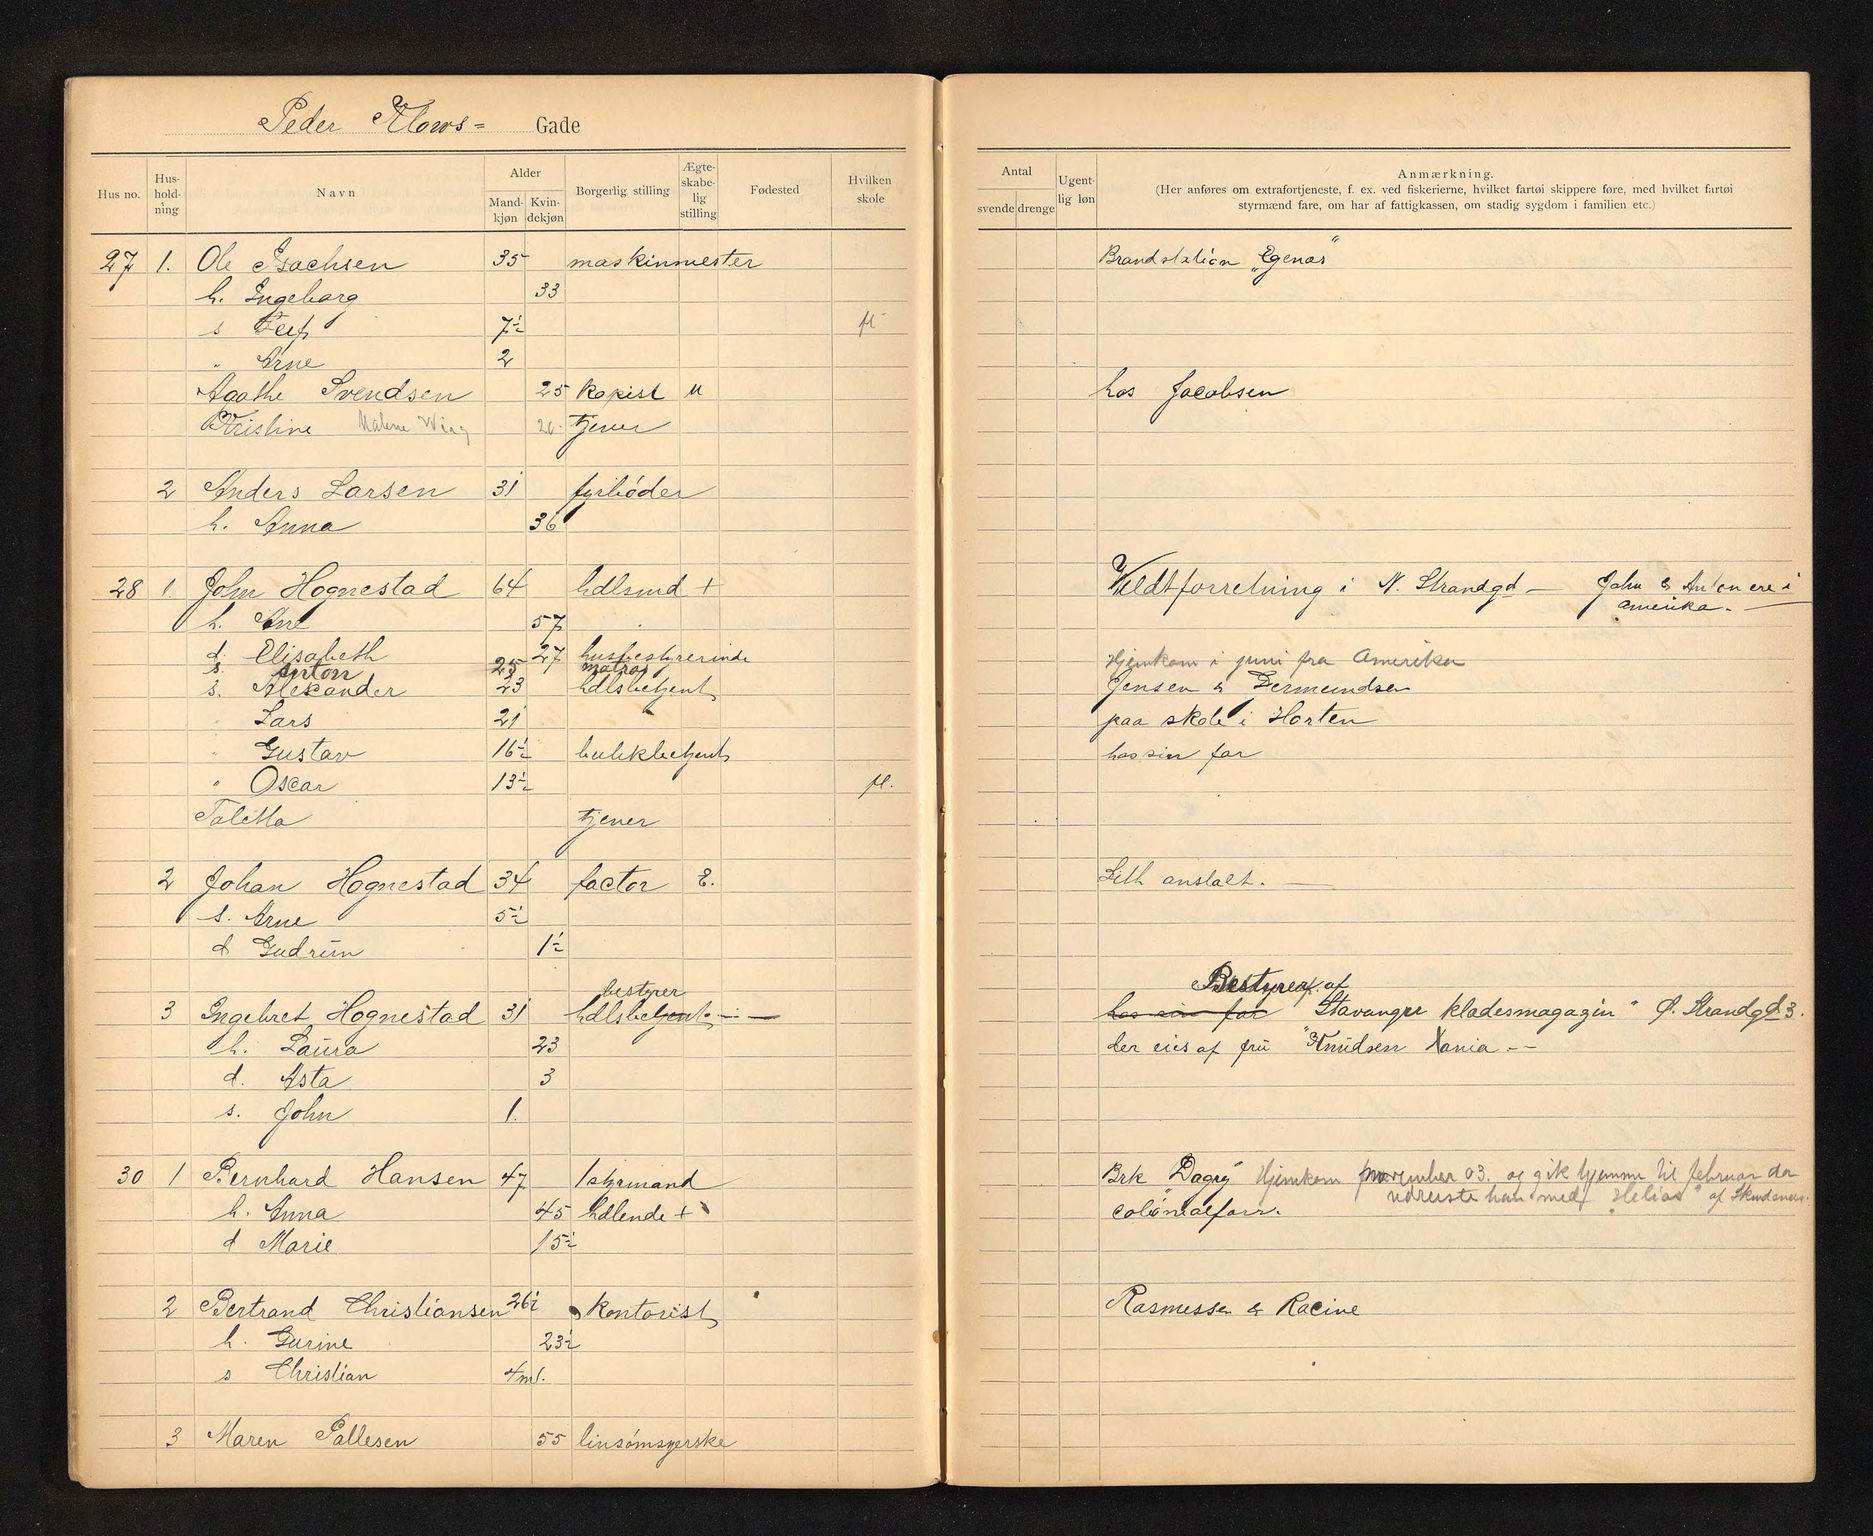 Peder Klows= Gade
Hus no. Hus-hold-ning Navn Alder Mand-kjøn Kvin-dekjøn Borgerlig stilling Ægte-skabe-lig stilling Fødested Hvilken skole
Antal svende drenge Ugent-lig løn Anmærkning.
(Her anføres om extrafortjeneste, f. ex. ved fiskerierne, hvilket fartøi skippere føre, med hvilket fartøi
styrmænd fare, om har af fattigkassen, om stadig sygdom i familien etc.)
27 1. Ole Isachsen 35 maskinmester Brandstation „Egenæs"
h. Ingeborg 33
s Leif 7½ fl
" Arne 2
Agathe Svendsen 25 kopist u hos Jacobsen
Kristine Malene Wiig 20 tjener
2 Anders Larsen 31 fyrbøder
h. Anna 36
28 1. John Hognestad 64 hdlsmd + Vildtforretning i N. Strandgd — John & Anton ere i
amerika. —
h. Ane 57
d. Elisabeth 27 husbestyrerinde Hjemkom i juni fra Amerika
s. Anton 25 matros
s. Alexander 23 hdlsbetjent Jensen & Dermundsen
" Lars 21 paa skole i Horten
" Gustav 16½ butikbetjent hos sin far
" Oscar 13½ fl.
Talitta tjener
2 Johan Hognestad 34 factor E. Lith anstalt. —
s. Arne 5½
d Gudrun 1½
bestyrer Bestyrer af
3 Ingebret Hognestad 31 hdlsbetjent — hos sin far "Stavanger klædesmagazin" Ø. Strandgd 3.
h. Laura 23 der eies af fru Knudsen Xania. —
d. Asta 3
s. John 1.
30 1 Bernhard Hansen 47 1styrmand Brk „Dagny" Hjemkom november 03. og gik hjemme til februar da
udreiste han med „Helios" af Skudenes.
h. Anna 45 hdlende + colonialforr.
d Marie 15½
2 Bertrand Christiansen 26½ kontorist Rasmussen & Racine
h. Gurine 23½
s Christian 4 md.
3 Maren Pallesen 55 linsømsyerske